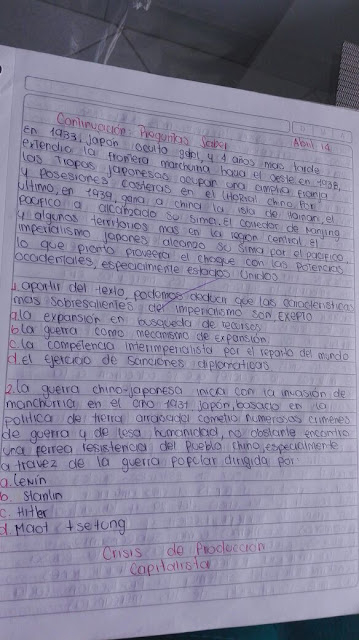 Continuación: Preguntas Saber Abril 14
en 1933, Japon ocupa y 4 años mas tarde
extendio la frontera marchuma hacia el oeste en 1938,
las tropas japonesas ocupan una amplia franja
y posesiones costeras en el litoral chino. Por
ultimo, en 1939, gana a china la isla de Hainan, el
pacifico a alcanzado su sima. El corredor de Nanjing
y algunos territorios mas en la region central. El
imperialismo japones alcanzo su sima por el pacifico,
lo que pronto provocera el choque con las potencias
occidentales, especialmente estados Unidos
1. apartir del texto, podemos deducir que las caracteristicas
mas sobresalientes del imperialismo son exepto
a. la expansión en busqueda de recursos
b. la guerra como mecanismo de expansión
c. la competencia interimperialista por el reparto del mundo
d. El ejercicio de sanciones diplomaticas
2. la guerra chino-japonesa inicia con la invasión de
manchurria en el año 1931, Japón, basado en la
politica de tierra arrasada cometio numerosos crimenes
de guerra y de lesa humanidad, no obstante encontro
una ferrea resistencia del pueblo chino, especialmente
a travez de la guerra popular dirigida por
a. Lenin
b. Stanlin
c. Hitler
d. Maot tsetung
Crisis de Produccion
Capitalista